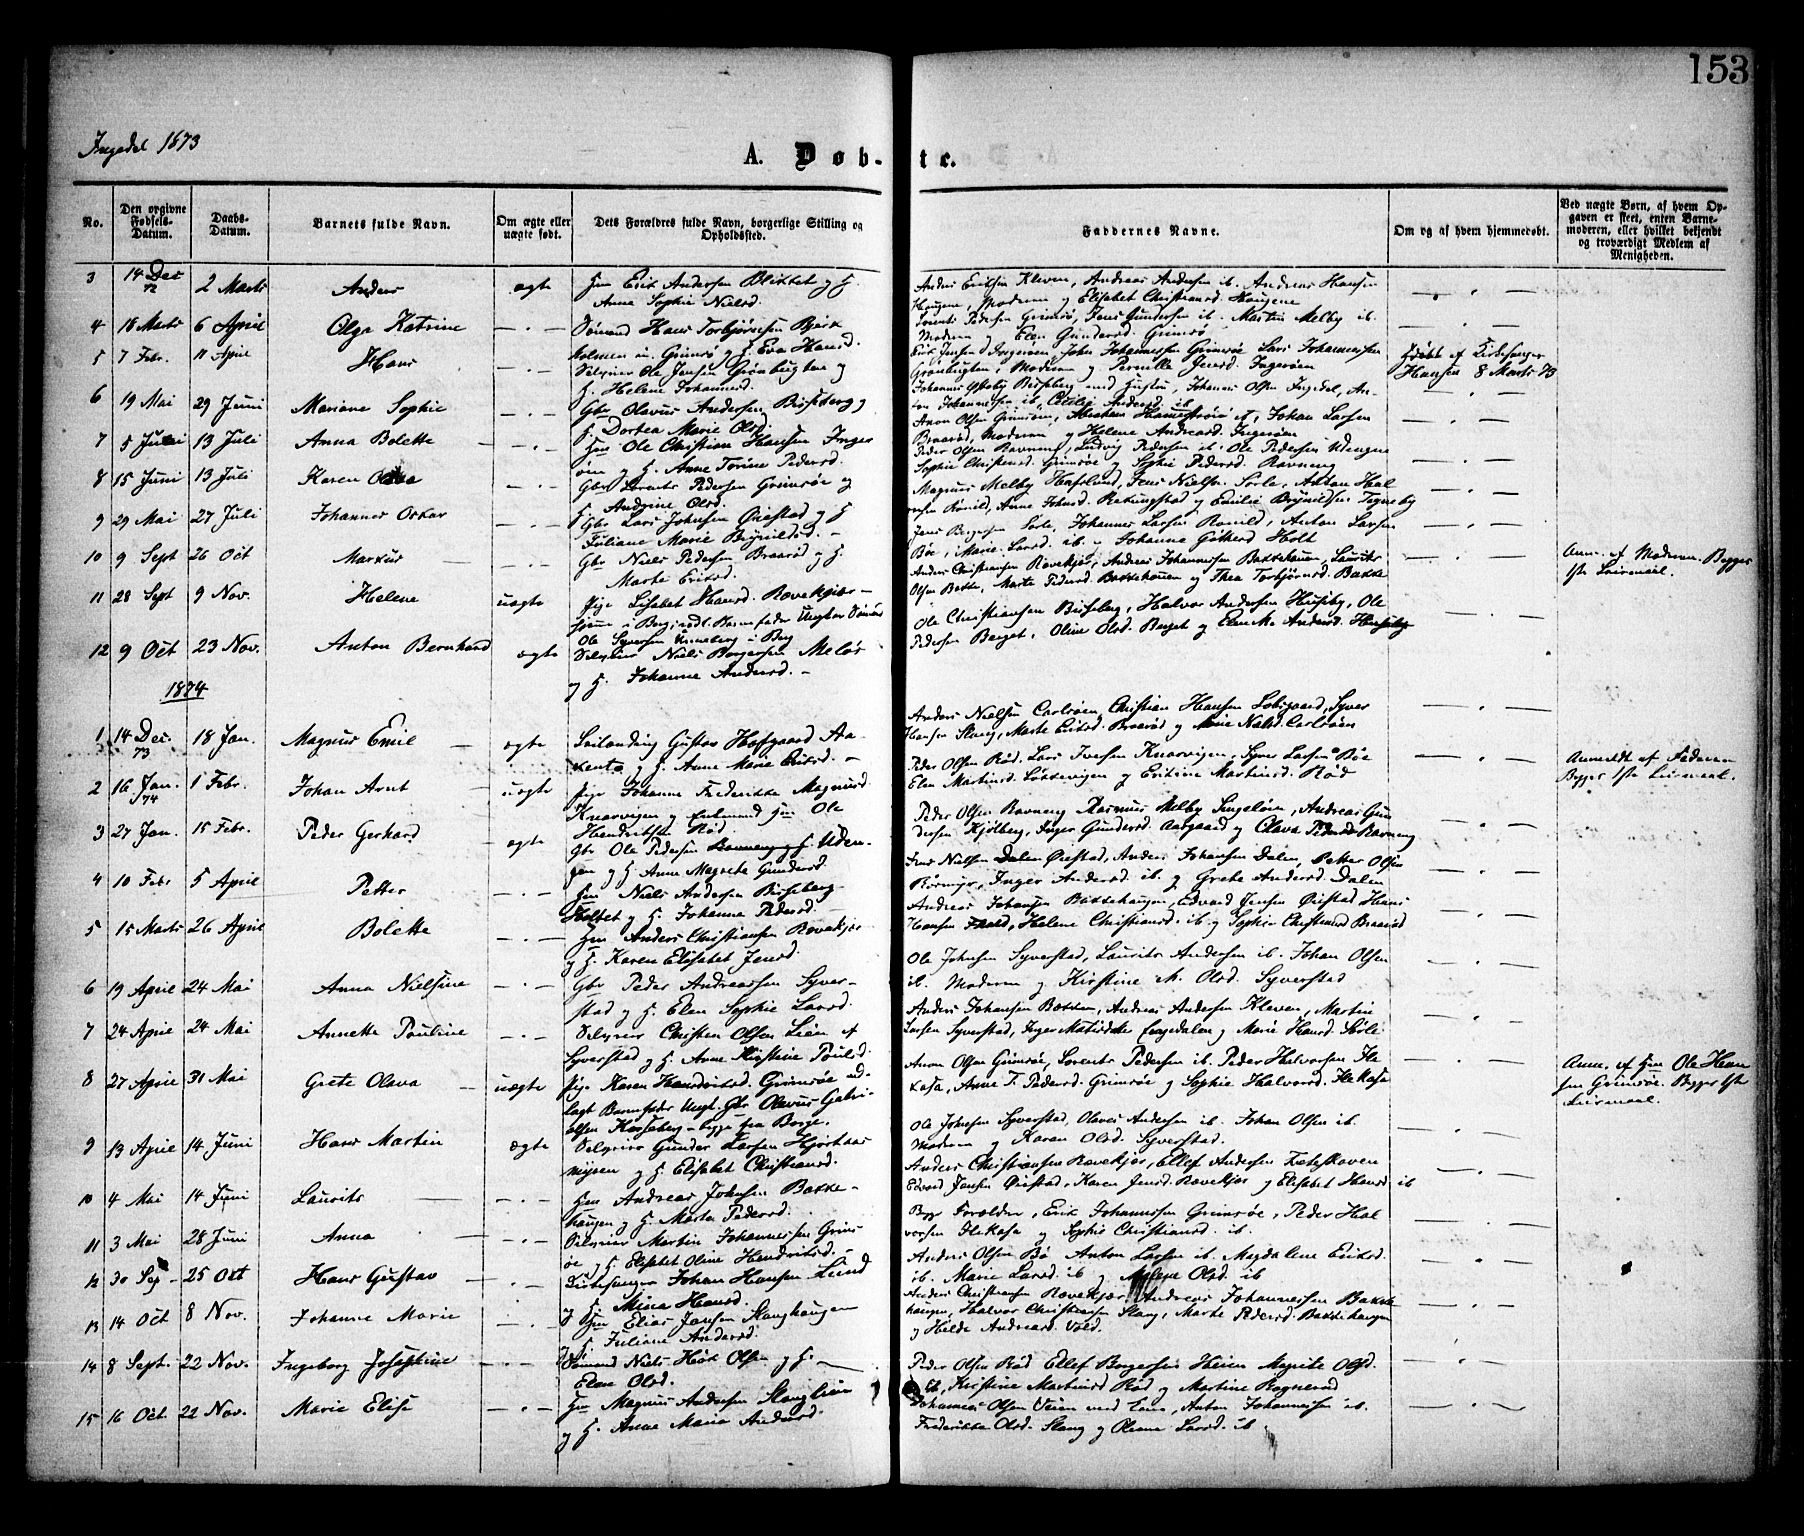 153
Ingedal 1873
A. Døbte.
No.
Den opgivne Fødsels-Datum.
Daabs-Datum.
Barnets fulde Navn.
Om ægte eller uægte født.
Dets Forældres fulde Navn, borgerlige Stilling og Opholdssted.
Faddernes Navne.
Om og af hvem hjemmedøbt.
Ved uægte Børn, af hvem Opgaven er skeet, enten Barnemoderen, eller hvilket bekjendt og troværdigt Medlem af Menigheden.
3 14 Dec 72 2 Marts Anders ægte
Anne Sophie Nielsd.
Anders Eriksen Kleven, Andreas Andersen ib. Andreas Hansen
Haugene, Moderen og Elisabet Christiansd. Haugene
4 18 Marts 6 April Olga Katrine — . —
Sømand Hans Torbjørnsen Bjerk
holmen u. Grimsø og H. Eva Hansd.
Pedersen Grimsø, Jens Gundersen ib. Martin Melby ib.
Moderen og Elen Gundersd. Grimsø
5 7 Febr. 11 April Hans — . —
Selveier Ole Jensen Grønbugten og
H. Helene Johannesd.
Erik Jensen Ingerøen, John Johannessen Grimsøe Lars Johannessen
Grønbugten, Moderen og Pernille Jensd. Ingerøen
Hjdøbt af Kirkesanger
Hansen 8 Marts 73
6 19 Mai 29 Juni Mariane Sophie — . —
Gbr Olavus Andersen Bisseberg og
H. Dortea Marie Olsd.
Johannes Ystehy Bisseberg med Hustru, Johannes Olsen Ingedal, An-
ton Johannessen ib, Cecilie Andersd. ib
7 5 Juli 13 Juli Anna Bolette — . —
Hm Ole Christian Hansen Inger
øen og H. Anne Torine Pedersd.
Braarød, Moderen og Helene Andreasd. Ingerøen
8 15 Juni 13 Juli Karen — . —
Gbr Lorents Pedersen Grimsøe og
H. Andrine Olsd.
Peder Olsen Ravneng, Ludvig Pedersen ib. Ole Pedersen Udengne
Sophie Christensd. Grimsøe og Sophie Pedersd. Ravneng
9 29 Mai 27 Juli Johannes Oskar — . —
Gbr Lars Johnsen Øiestad og H
Juliane Marie Brynildsd. —
Magnus Melby Hafslund, Jens Nielsen Sørle, Anton Hal
vorsen Romild, Anne Johnsd. Rekingstad og Emilie Brynilsen Tegneby
10 9 Sept 26 Oct Markus — . —
Gbr Niels Pedersen Braarød og H.
Marte Eriksd.
Jens Bergersen Sørle, Johannes Larsen Romild, Anton Larsen
Bøe, Marie Larsd. ib. Johanne Holt
11 28 Sept 9 Nov. Helene uægte
Pige Lisabet Hansd. Rævekjær
Ole Syversen Unneberg i Berg
Anders Christiansen Rævekjær, Andreas Johannessen Bakkehauen, Laurits
Olsen Bakke, Marte Pedersd. Bakkehauen og Thea Torbjørnsd. Bakke
Anm. af Moderen. Begges
1ste Leiermaal.
12 9 Oct 23 Nov. Anton Bernhard ægte
Selveier Niels Borgersen Meløs
og H. Johanne Andersd. —
Ole Christiansen Bisseberg, Halvor Andersen Huseby, Ole
Pedersen Berget, Oline Olsd. Berget og Elen M. Andersd. Huseby
1874
1 14 Dec. 73 18 Jan. Magnus Emil — ægte
Seilanding Gustav Hafgaard Aa-
og H. Anne Marie Eriksd. —
Anders Nielsen Carlsøen, Christian Hansen Labsgaard, Syver
Hansen Slang, Marte Eriksd. Braarød og Marie Nielsd. Carlsøen
2 16 Jan. 74 1 Febr. Johan Arnt — uægte
Pige Johanne Frederikke Magnusd
Knarvigen og Enkemand Hm Ole
Hendriksen Rød.
Peder Olsen Rød, Lars Iversen Knarvigen, Syver Larsen Bøe
Elen Martinsd. Løkkevigen og Eritine Martinsd. Rød
Anmeldt af Faderen
Begges 1ste Leiermaal.
3 27 Jan. 15 Febr. Peder Gerhard — ægte
Gbr Ole Pedersen Uden-
gen og H. Anne Magrete Gundersd
Peder Olsen Ravneng Rasmus Melby Singeløen, Andreas Gun
dersen Kjølberg, Inger Gundersd. Aasgaard og Olava Pedersd Ravneng
4 10 Febr 5 April Petter — . —
Hm Niels Andersen Bisseberg-
holtet og H. Johanna Pedersd.
Jens Nielsen Dalen Øiestad, Anders Johansen Dalen, Petter Olsen
Rørmyr, Inger Andersd. ib. og Grete Andersd. Dalen
5 15 Marts 26 April Bolette — . —
Hm Anders Christiansen Rævekjær
og H. Karen Elisabet Jensd.
Andreas Johansen Bakkehaugen, Edvard Jensen Øiestad Hans
Hansen, Helene Christiansd. ib og Sophie Christiansd Braarød
6 19 April 24 Mai Anna Nielsine — . —
Gbr Peder Andreassen Syver-
stad og H. Elen Sophie Larsd.
Ole Johnsen Syverstad, Laurits Andersen ib. Johan Olsen
ib. Moderen og Kirstine M. Olsd. Syverstad
7 24 April 24 Mai Annette Pauline — . —
Selveier Christen Olsen Lien af
Syverstad og H. Anne Kirstine Poulsd.
Anders Johansen Bakken, Andreas Andersen Kleven, Martin
Larsen Syverstad, Inger Matilde Engedalen og Marie Hansd. Sørle
8 27 April 31 Mai Grete Olava — uægte
Pige Karen Hendriksd. Grimsøe ud-
lagt Barnefader Ungk. Gbr Olavus Gabri-
elsen Kasseberg — begge fra Borge.
Anton Olsen Grimsøe, Lorents Pedersen ib. Peder Halvorsen Fle
kasa, Anne T. Pedersd. Grimsøe og Sophie Halvorsd. Flekasa
Anm. af Hm Ole Han
sen Grimsøe. Begges 1ste
Leiermaal.
9 13 April 14 Juni Hans Martin ægte
Selveier Gunder Larsen Hjortaas
mysen og H. Elisabet Christiansd.
Ole Johnsen Syverstad, Olaves Andersen ib. Johan Olsen ib.
Moderen og Karen Olsd. Syverstad.
10 4 Mai 14 Juni Laurits — . —
Hm Andreas Johnsen Bakke-
haugen og H. Marte Pedersd.
Anders Christiansen Rævekjær, Ellef Andersen
Edvard Jensen Øiestad, Karen Jensd. Rævekjær og Elisabet Hansd ib
11 3 Mai 28 Juni Anna — . —
Selveier Martin Johannessen Grims
øe og H. Elisabet Oline Hendriksd.
Begge Forældre, Erik Johannessen Grimsøe, Peder Hal
vorsen Flekasa og Sophie Christiansd. ib.
12 30 Sep 25 Oct Hans Gustav — . —
Kirkesanger Johan Hansen Lund
og H. Mina Hansd.
Anders Olsen Bø Anton Larsen ib. Magdalene Eriksd.
ib. Marie Larsd. ib og Malene Olsd. ib
13 14 Oct 8 Nov. Johanne Marie — . —
Hm Elias Jansen Slanghaugen
og H. Juliane Andersd.
Anders Christiansen Rævekjær Andreas Johannessen Bakke
haugen, Halvor Christiansen Slang, Marte Pedersd. Bakkehaugen
og Helde Andreasd. Vold.
14 8 Sept. 22 Nov. Ingeborg Josephine — . —
Sømand Niels Høk Olsen og H.
Elen Olsd.
Peder Olsen Rød Ellef Borgersen Heien Magrete Olsd.
ib, Kirstine Martinsd Rød og Martine Ragnersd
15 16 Oct. 22 Nov. Marie Elise — . —
Hm Magnus Andersen Slanglien
og H. Anne Maria Andersd.
Johannes Olsen Veien med Kone, Anton Johannessen ib.
Frederikke Olsd. Slang og Oleane Larsd. ib